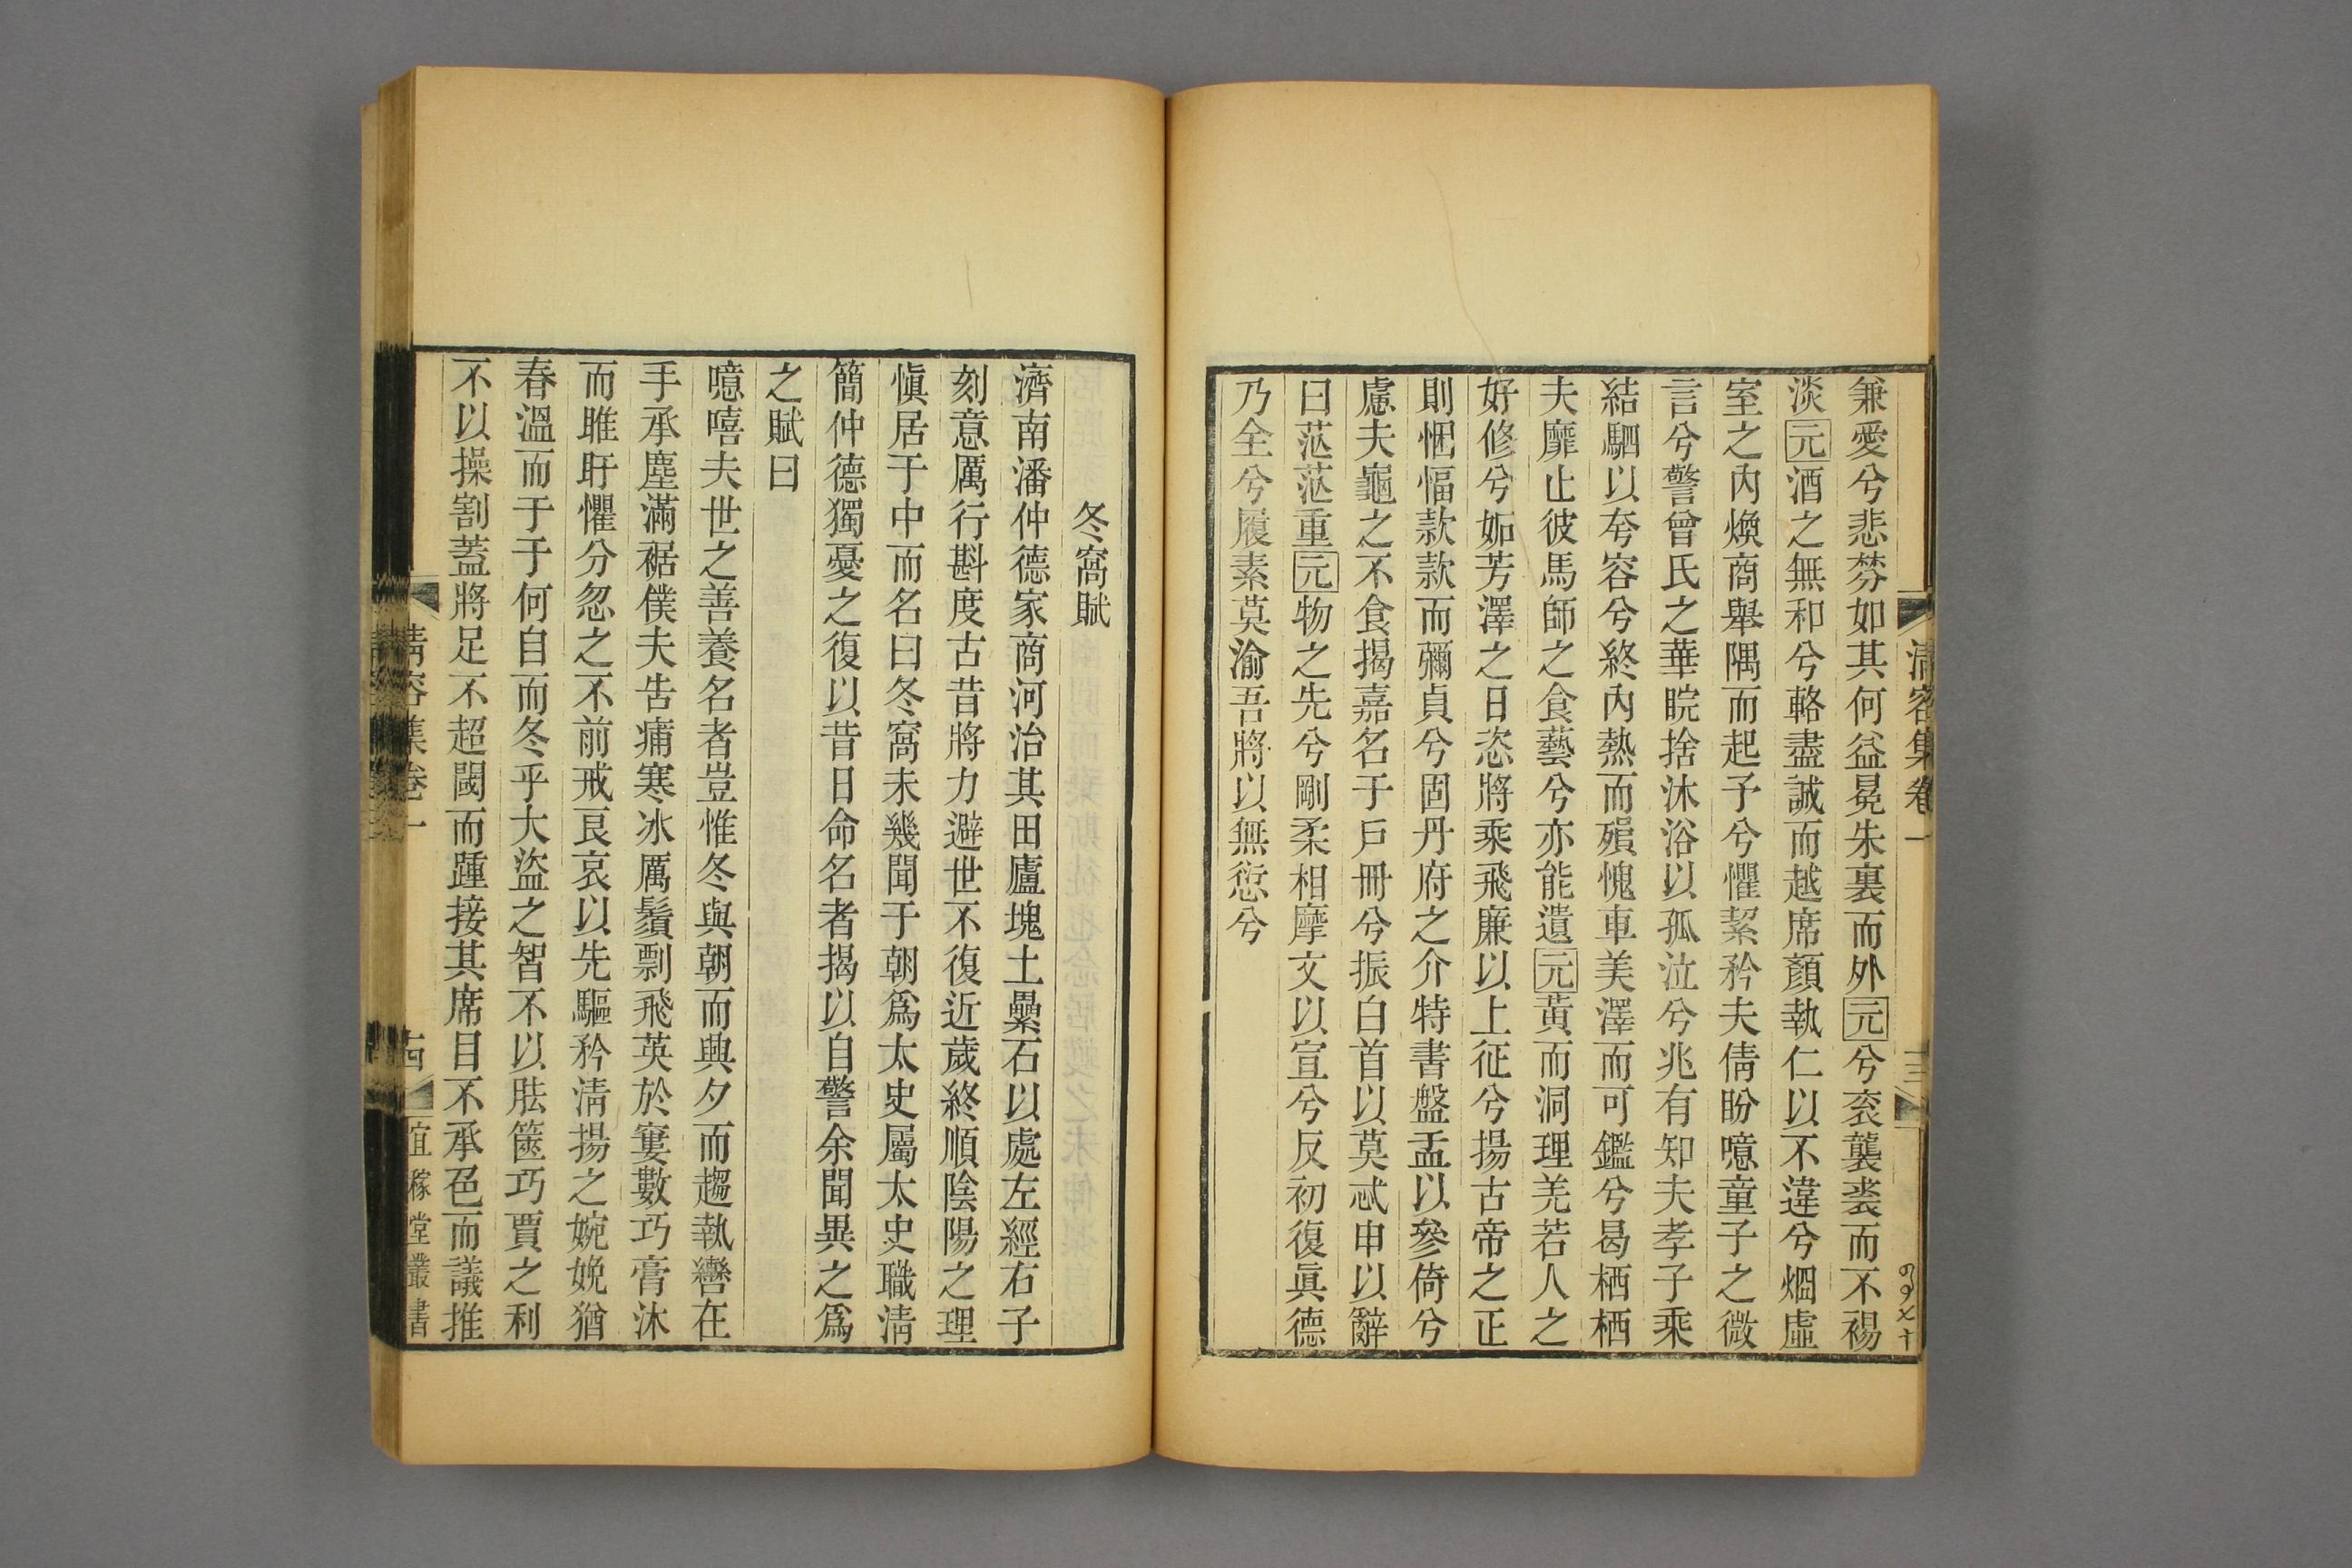 兼愛兮悲棼如其何益冕朱裏而外元兮衮襲裘而不裼
淡元酒之無和兮輅盡誠而越席顏執仁以不違兮烱虛
室之內煥商舉隅而起予兮懼絜矜夫倩盼噫童子之微
言兮警曾氏之華睆捨沐浴以孤泣兮兆有知夫孝子乘
結駟以夸容兮終內熱而殞愧車美澤而可鑑兮曷栖栖
夫靡止彼馬師之食藝兮亦能遺元黃而洞理羌若人之
好修兮姤芳澤之日恣將乘飛廉以上征兮揚古帝之正
則悃愊款款而彌貞兮固丹府之介特書盤盂以參倚兮
慮夫龜之不食揭嘉名于戶冊兮振白首以莫忒申以辭
曰茫茫重元物之先兮剛柔相摩文以宣兮反初復眞德
乃全兮履素莫渝吾將以無愆兮
清容集卷一
三
冬窩賦
濟南潘仲德家商河治其田廬塊土纍石以處左經右子
刻意厲行斟度古昔將力避世不復近歲終順陰陽之理
愼居于中而名曰冬窩未幾聞于朝爲太史屬太史職淸
簡仲德獨憂之復以昔日命名者揭以自警余聞異之爲
之賦曰
噫嘻夫世之善養名者豈惟冬與朝而興夕而趨執轡在
手承塵滿裾僕夫告痡寒冰厲鬚剽飛英於寠數巧膏沐
而睢盱懼分忽之不前戒艮哀以先驅矜淸揚之婉娩猶
春溫而于于何自而冬乎大盜之智不以胠篋巧賈之利
不以操割蓋將足不超閾而踵接其席目不承色而議推
清容集卷一
古
宜稼堂叢書